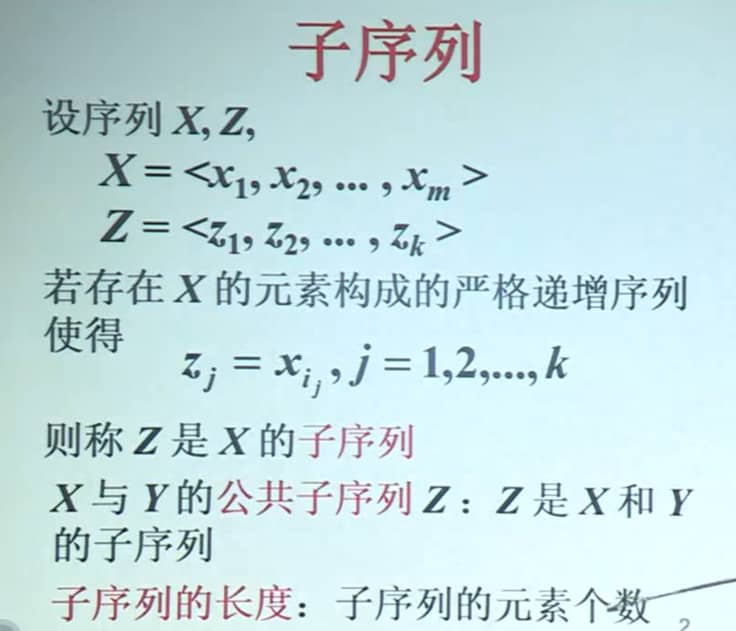 子序列
设序列 X, Z,
X = <x₁, x₂, ... , xₘ>
Z = <z₁, z₂, ... , zₖ>
若存在 X 的元素构成的严格递增序列
使得
z_j = x_{i_j} , j = 1,2,..., k
则称 Z 是 X 的子序列
X 与 Y 的公共子序列 Z：Z 是 X 和 Y
的子序列
子序列的长度：子序列的元素个数
2